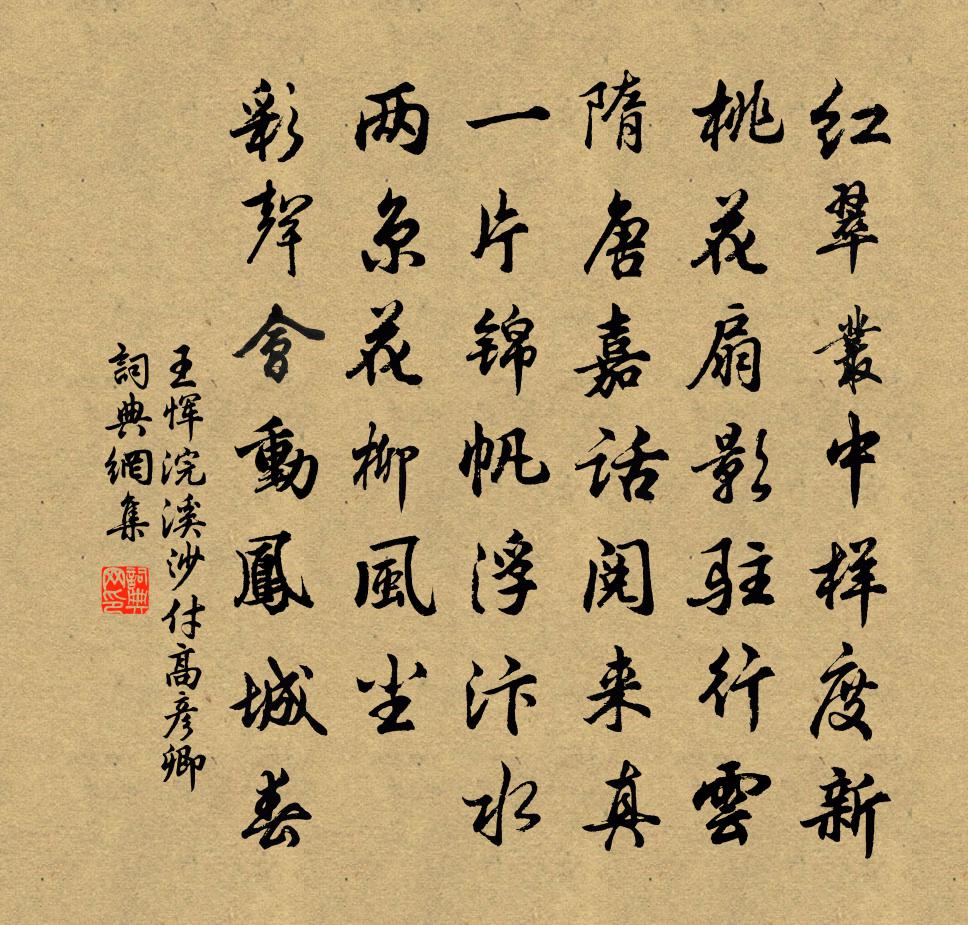 红翠丛中样度新
桃花扇影驻行雲
隋唐嘉话阅来真
一片锦帆浮汴水
两京花柳风尘
彩聲會動鳳城春
王恽浣溪沙付高彦卿
詞典網集
詞典网印